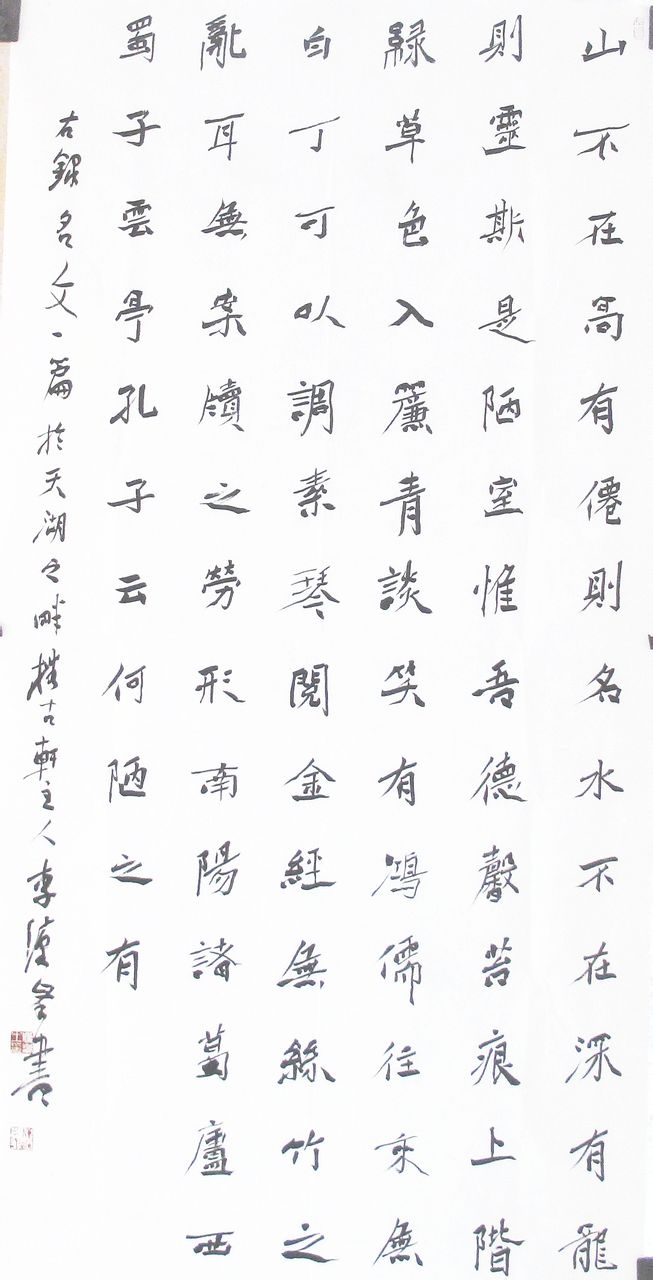 山不在高有僊則名水不在深有龍
則靈斯是陋室惟吾德馨苔痕上階
綠草色入簾青談笑有鴻儒往來無
白丁可以調素琴閱金經無絲竹之
亂耳無案牘之勞形南陽諸葛廬西
蜀子雲亭孔子云何陋之有
右錄名文一篇於天湖之畔古軒主人李書